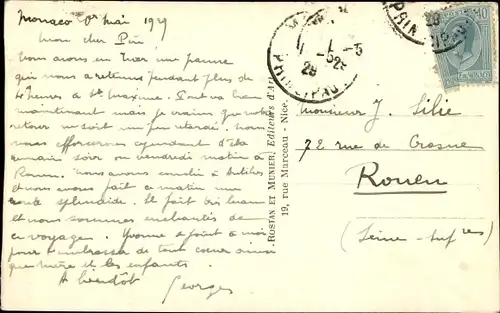 Monaco 1er Mai 1929
Mon cher Piú
Nous avons eu hier une panne
qui nous a retenus pendant plus de
4 heures à Ste Maxime. Tout va bien
maintenant mais je crains que notre
retour ne soit un peu retardé. Nous
nous efforcerons cependant d'être
demain soir ou vendredi matin à
Rouen. Nous avons couché à Antibes
et nous avons fait ce matin une
route splendide. Il fait très beau
et nous sommes enchantés de
ce voyage. Yvonne se joint à moi
pour t'embrasser de tout coeur ainsi
que mère et les enfants.
A bientôt Georges
ROSTAN ET MUNIER, Editeurs d'Art
19, rue Marceau - Nice.
PRINCIPAUTÉ
1 - 5
29
40
Monsieur J. Silie
72 rue de Crosne
Rouen
(Seine-Infre)